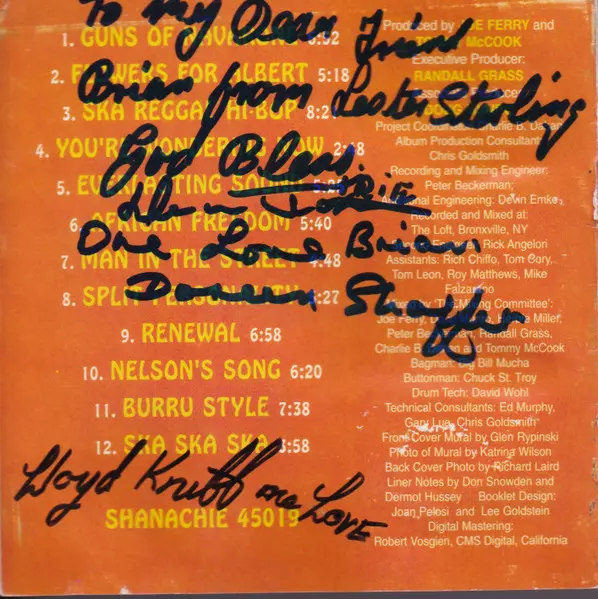 To my Dear Friend
Brian from Lester Sterling
God Bless
One Love Brian
1. GUNS OF
2. FLOWERS FOR ALBERT 5:18
3. SKA REGGAE HI-BOP
4. YOU'RE WONDERING NOW
5. EVERLASTING SOUND
6. AFRICAN FREEDOM 5:40
7. MAN IN THE STREET
8. SPLIT PERSONALITY
9. RENEWAL 6:58
10. NELSON'S SONG 6:20
11. BURRU STYLE 7:38
12. SKA SKA SKA
Lloyd Knibb one LOVE
SHANACHIE 45019
Produced by FERRY and
McCOOK
Executive Producer:
RANDALL GRASS
Album Production Consultant:
Chris Goldsmith
Recording and Mixing Engineer:
Peter Beckerman;
Additional Engineering: Dewn Emke,
Recorded and Mixed at:
The Loft, Bronxville, NY
Rick Angelori
Assistants: Rich Chiffo, Tom Cory,
Tom Leon, Roy Matthews, Mike
Falzarano
Mixed by 'The Mixing Committee':
Joe Ferry, Miller,
Peter Randall Grass,
Charlie B. and Tommy McCook
Bagman: Big Bill Mucha
Buttonman: Chuck St. Troy
Drum Tech: David Wohl
Technical Consultants: Ed Murphy,
Gary Lua, Chris Goldsmith
Front Cover Mural by Glen Rypinski
Photo of Mural by Katrina Wilson
Back Cover Photo by Richard Laird
Liner Notes by Don Snowden and
Dermot Hussey Booklet Design:
Joan Pelosi and Lee Goldstein
Digital Mastering:
Robert Vosgien, CMS Digital, California